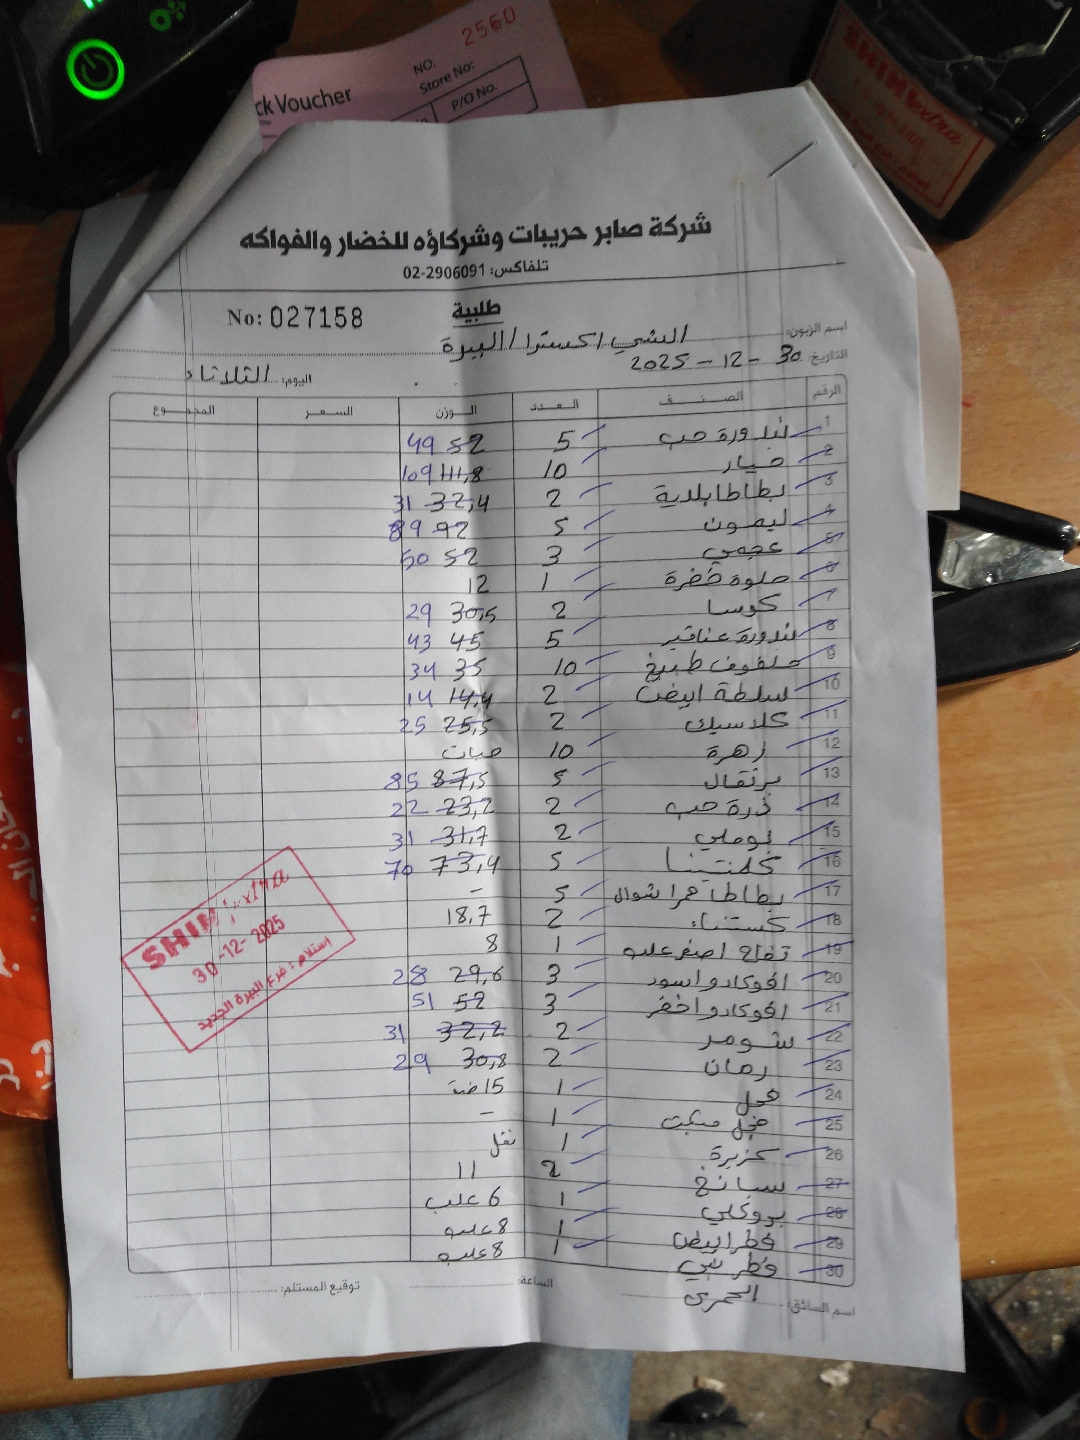 2560
NO.
Store No:
ck Voucher
P/O No.
SHINI extra
شركة صابر حريبات وشركاؤه للخضار والفواكه
تلفاكس: 02-2906091
No: 027158
طلبية
اسم الزبون: الشني اكسترا / البيرة
التاريخ 30 - 12 - 2025
اليوم: الثلاثاء
الرقم الصنف العدد الوزن السعر المجموع
1 بندورة حب 5 52 49
2 خيار 10 111,8 109
3 بطاطا بلدية 2 32,4 31
4 ليمون 5 92 89
5 عجمي 3 52 50
6 حلوة خضرة 1 12
7 كوسا 2 30,5 29
8 بندورة عناقيد 5 45 43
9 ملفوف طبيخ 10 35 34
10 سلطة ابيض 2 14,4 14
11 كلاسيك 2 25,5 25
12 زهرة 10 حبات
13 برتقال 5 87,5 85
14 ذرة حب 2 23,2 22
15 بوملي 2 31,7 31
16 كلمنتينا 5 73,4 70
17 بطاطا حمرا شوال 5 -
18 كستناء 2 18,7
19 تفاح اصفر علبه 1 8
20 افوكادو اسود 3 29,6 28
21 افوكادو اخضر 3 52 51
22 شومر 2 32,2 31
23 رمان 2 30,8 29
24 فجل 1 15
25 فجل 1 -
26 كزبرة 1
27 سبانخ 2 11
28 بروكلي 1 6 علب
29 فطر ابيض 1 8 علبه
30 فطر بني 1 8 علبه
SHINI extra
30-12-2025
استلام: فرع البيرة الجديد
اسم السائق: الحمري الساعة: توقيع المستلم: